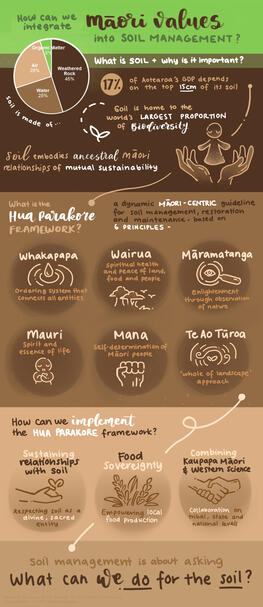 How can we
integrate
māori values
into SOIL MANAGEMENT?
Organic Matter
Air
25%
Weathered
Rock
45%
Water
25%
Soil is made of...
What is SOIL + why is it important?
17%
of Aotearoa's GDP depends
on the top 15cm of its soil
Soil is home to the
world's LARGEST PROPORTION
of Biodiversity
Soil embodies ancestral māori
relationships of mutual sustainability
What is the
Hua Parakore
FRAMEWORK?
a dynamic MĀORI-CENTRIC guideline
for soil management, restoration
and maintenance - based on
6 PRINCIPLES -
Whakapapa
Ordering system that
connects all entities
Wairua
Spiritual health
and peace of land,
food and people
Māramatanga
Enlightenment
through observation
of nature
Mauri
Spirit and
essence of life
Mana
Self-determination of
Māori people
Te Ao Tūroa
"whole of landscape"
approach
How can we implement
the HUA PARAKORE framework?
Sustaining
relationships
with soil
Respecting soil as a
divine, sacred
entity
Food
Sovereignty
Empowering local
food production
Combining
Kaupapa Māori
& western science
Collaboration on
tribal, state and
national levels
Soil management is about asking
What can we do for the soil?